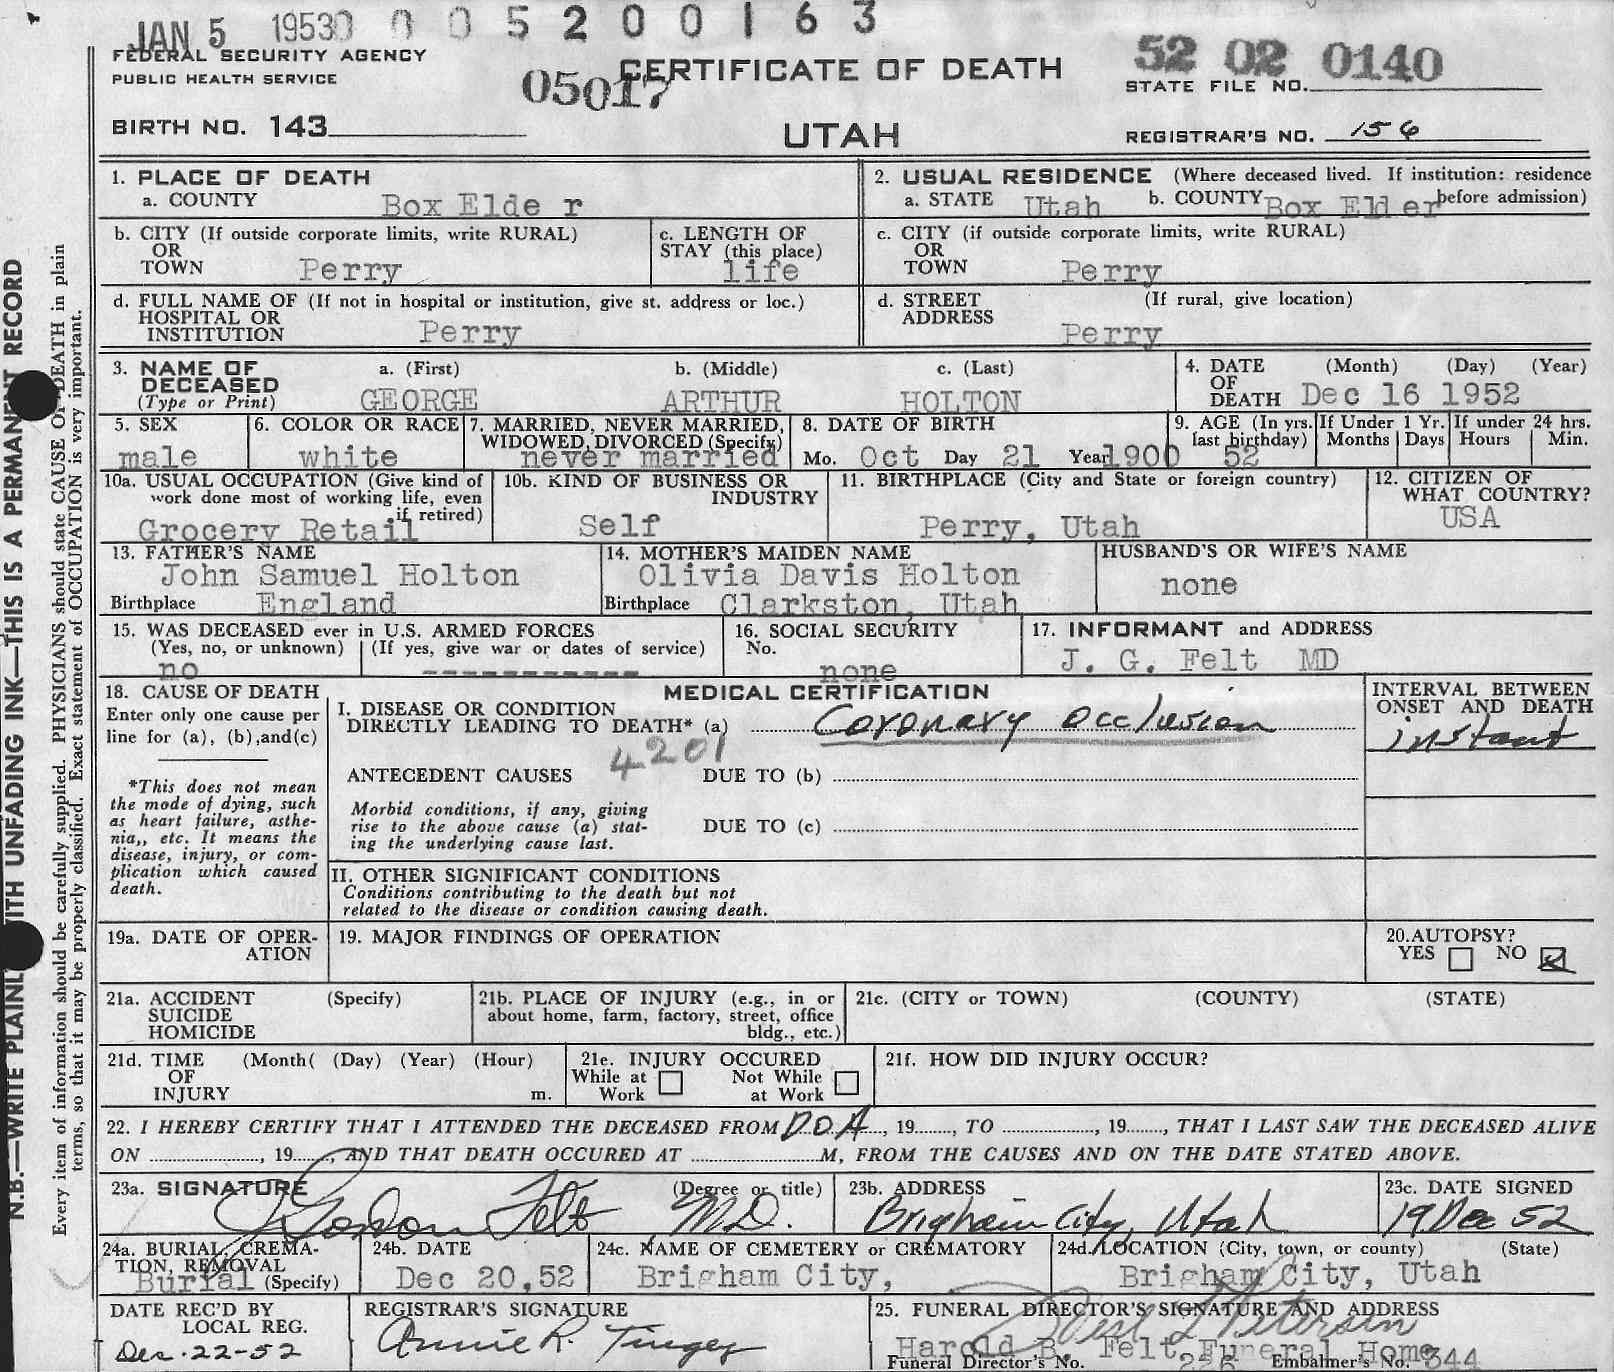 JAN 5 1953 0 0 5 2 0 0 1 6 3
FEDERAL SECURITY AGENCY
PUBLIC HEALTH SERVICE
05017
CERTIFICATE OF DEATH
52 02 0140
STATE FILE NO.
BIRTH NO. 143
UTAH
REGISTRAR'S NO. 156
1. PLACE OF DEATH
a. COUNTY Box Elde r
2. USUAL RESIDENCE (Where deceased lived. If institution: residence
a. STATE Utah b. COUNTY Box Eld er before admission)
b. CITY (If outside corporate limits, write RURAL)
OR
TOWN Perry
c. LENGTH OF
STAY (this place)
life
c. CITY (if outside corporate limits, write RURAL)
OR
TOWN Perry
d. FULL NAME OF (If not in hospital or institution, give st. address or loc.)
HOSPITAL OR
INSTITUTION Perry
d. STREET (If rural, give location)
ADDRESS
Perry
3. NAME OF a. (First) b. (Middle) c. (Last)
DECEASED
(Type or Print) GEORGE ARTHUR HOLTON
4. DATE (Month) (Day) (Year)
OF
DEATH Dec 16 1952
5. SEX
male
6. COLOR OR RACE
white
7. MARRIED, NEVER MARRIED,
WIDOWED, DIVORCED (Specify)
never married
8. DATE OF BIRTH
Mo. Oct Day 21 Year 1900
9. AGE (In yrs. last birthday)
52
If Under 1 Yr.
Months Days
If under 24 hrs.
Hours Min.
10a. USUAL OCCUPATION (Give kind of
work done most of working life, even
if retired)
Grocery Retail
10b. KIND OF BUSINESS OR
INDUSTRY
Self
11. BIRTHPLACE (City and State or foreign country)
Perry, Utah
12. CITIZEN OF
WHAT COUNTRY?
USA
13. FATHER'S NAME
John Samuel Holton
Birthplace England
14. MOTHER'S MAIDEN NAME
Olivia Davis Holton
Birthplace Clarkston, Utah
HUSBAND'S OR WIFE'S NAME
none
15. WAS DECEASED ever in U.S. ARMED FORCES
(Yes, no, or unknown) (If yes, give war or dates of service)
no -----------
16. SOCIAL SECURITY
No.
none
17. INFORMANT and ADDRESS
J. G. Felt MD
18. CAUSE OF DEATH
Enter only one cause per
line for (a), (b),and(c)
*This does not mean
the mode of dying, such
as heart failure, asthe-
nia,, etc. It means the
disease, injury, or com-
plication which caused
death.
MEDICAL CERTIFICATION
I. DISEASE OR CONDITION
DIRECTLY LEADING TO DEATH* (a) Coronary occlusion
4201
ANTECEDENT CAUSES DUE TO (b)
Morbid conditions, if any, giving
rise to the above cause (a) stat-
ing the underlying cause last.
DUE TO (c)
II. OTHER SIGNIFICANT CONDITIONS
Conditions contributing to the death but not
related to the disease or condition causing death.
INTERVAL BETWEEN
ONSET AND DEATH
instant
19a. DATE OF OPER-
ATION
19. MAJOR FINDINGS OF OPERATION
20.AUTOPSY?
YES NO
21a. ACCIDENT (Specify)
SUICIDE
HOMICIDE
21b. PLACE OF INJURY (e.g., in or
about home, farm, factory, street, office
bldg., etc.)
21c. (CITY or TOWN) (COUNTY) (STATE)
21d. TIME (Month( (Day) (Year) (Hour)
OF
INJURY m.
21e. INJURY OCCURED
While at Work
Not While at Work
21f. HOW DID INJURY OCCUR?
22. I HEREBY CERTIFY THAT I ATTENDED THE DECEASED FROM D.O.A., 19......, TO ............, 19......, THAT I LAST SAW THE DECEASED ALIVE
ON ............, 19......, AND THAT DEATH OCCURED AT ............M, FROM THE CAUSES AND ON THE DATE STATED ABOVE.
23a. SIGNATURE (Degree or title)
J Gordon Felt M.D.
23b. ADDRESS
Brigham City, Utah
23c. DATE SIGNED
19 Dec 52
24a. BURIAL, CREMA-
TION, REMOVAL
Burial (Specify)
24b. DATE
Dec 20,52
24c. NAME OF CEMETERY or CREMATORY
Brigham City,
24d. LOCATION (City, town, or county) (State)
Brigham City, Utah
DATE REC'D BY
LOCAL REG.
Dec. 22-52
REGISTRAR'S SIGNATURE
Annie R. Tingey
25. FUNERAL DIRECTOR'S SIGNATURE AND ADDRESS
Petersen
Harold B. Felt Funeral Home
Funeral Director's No. 226 Embalmer's No. 344
N.B.—WRITE PLAINLY WITH UNFADING INK—THIS IS A PERMANENT RECORD
Every item of information should be carefully supplied. PHYSICIANS should state CAUSE OF DEATH in plain
terms, so that it may be properly classified. Exact statement of OCCUPATION is very important.